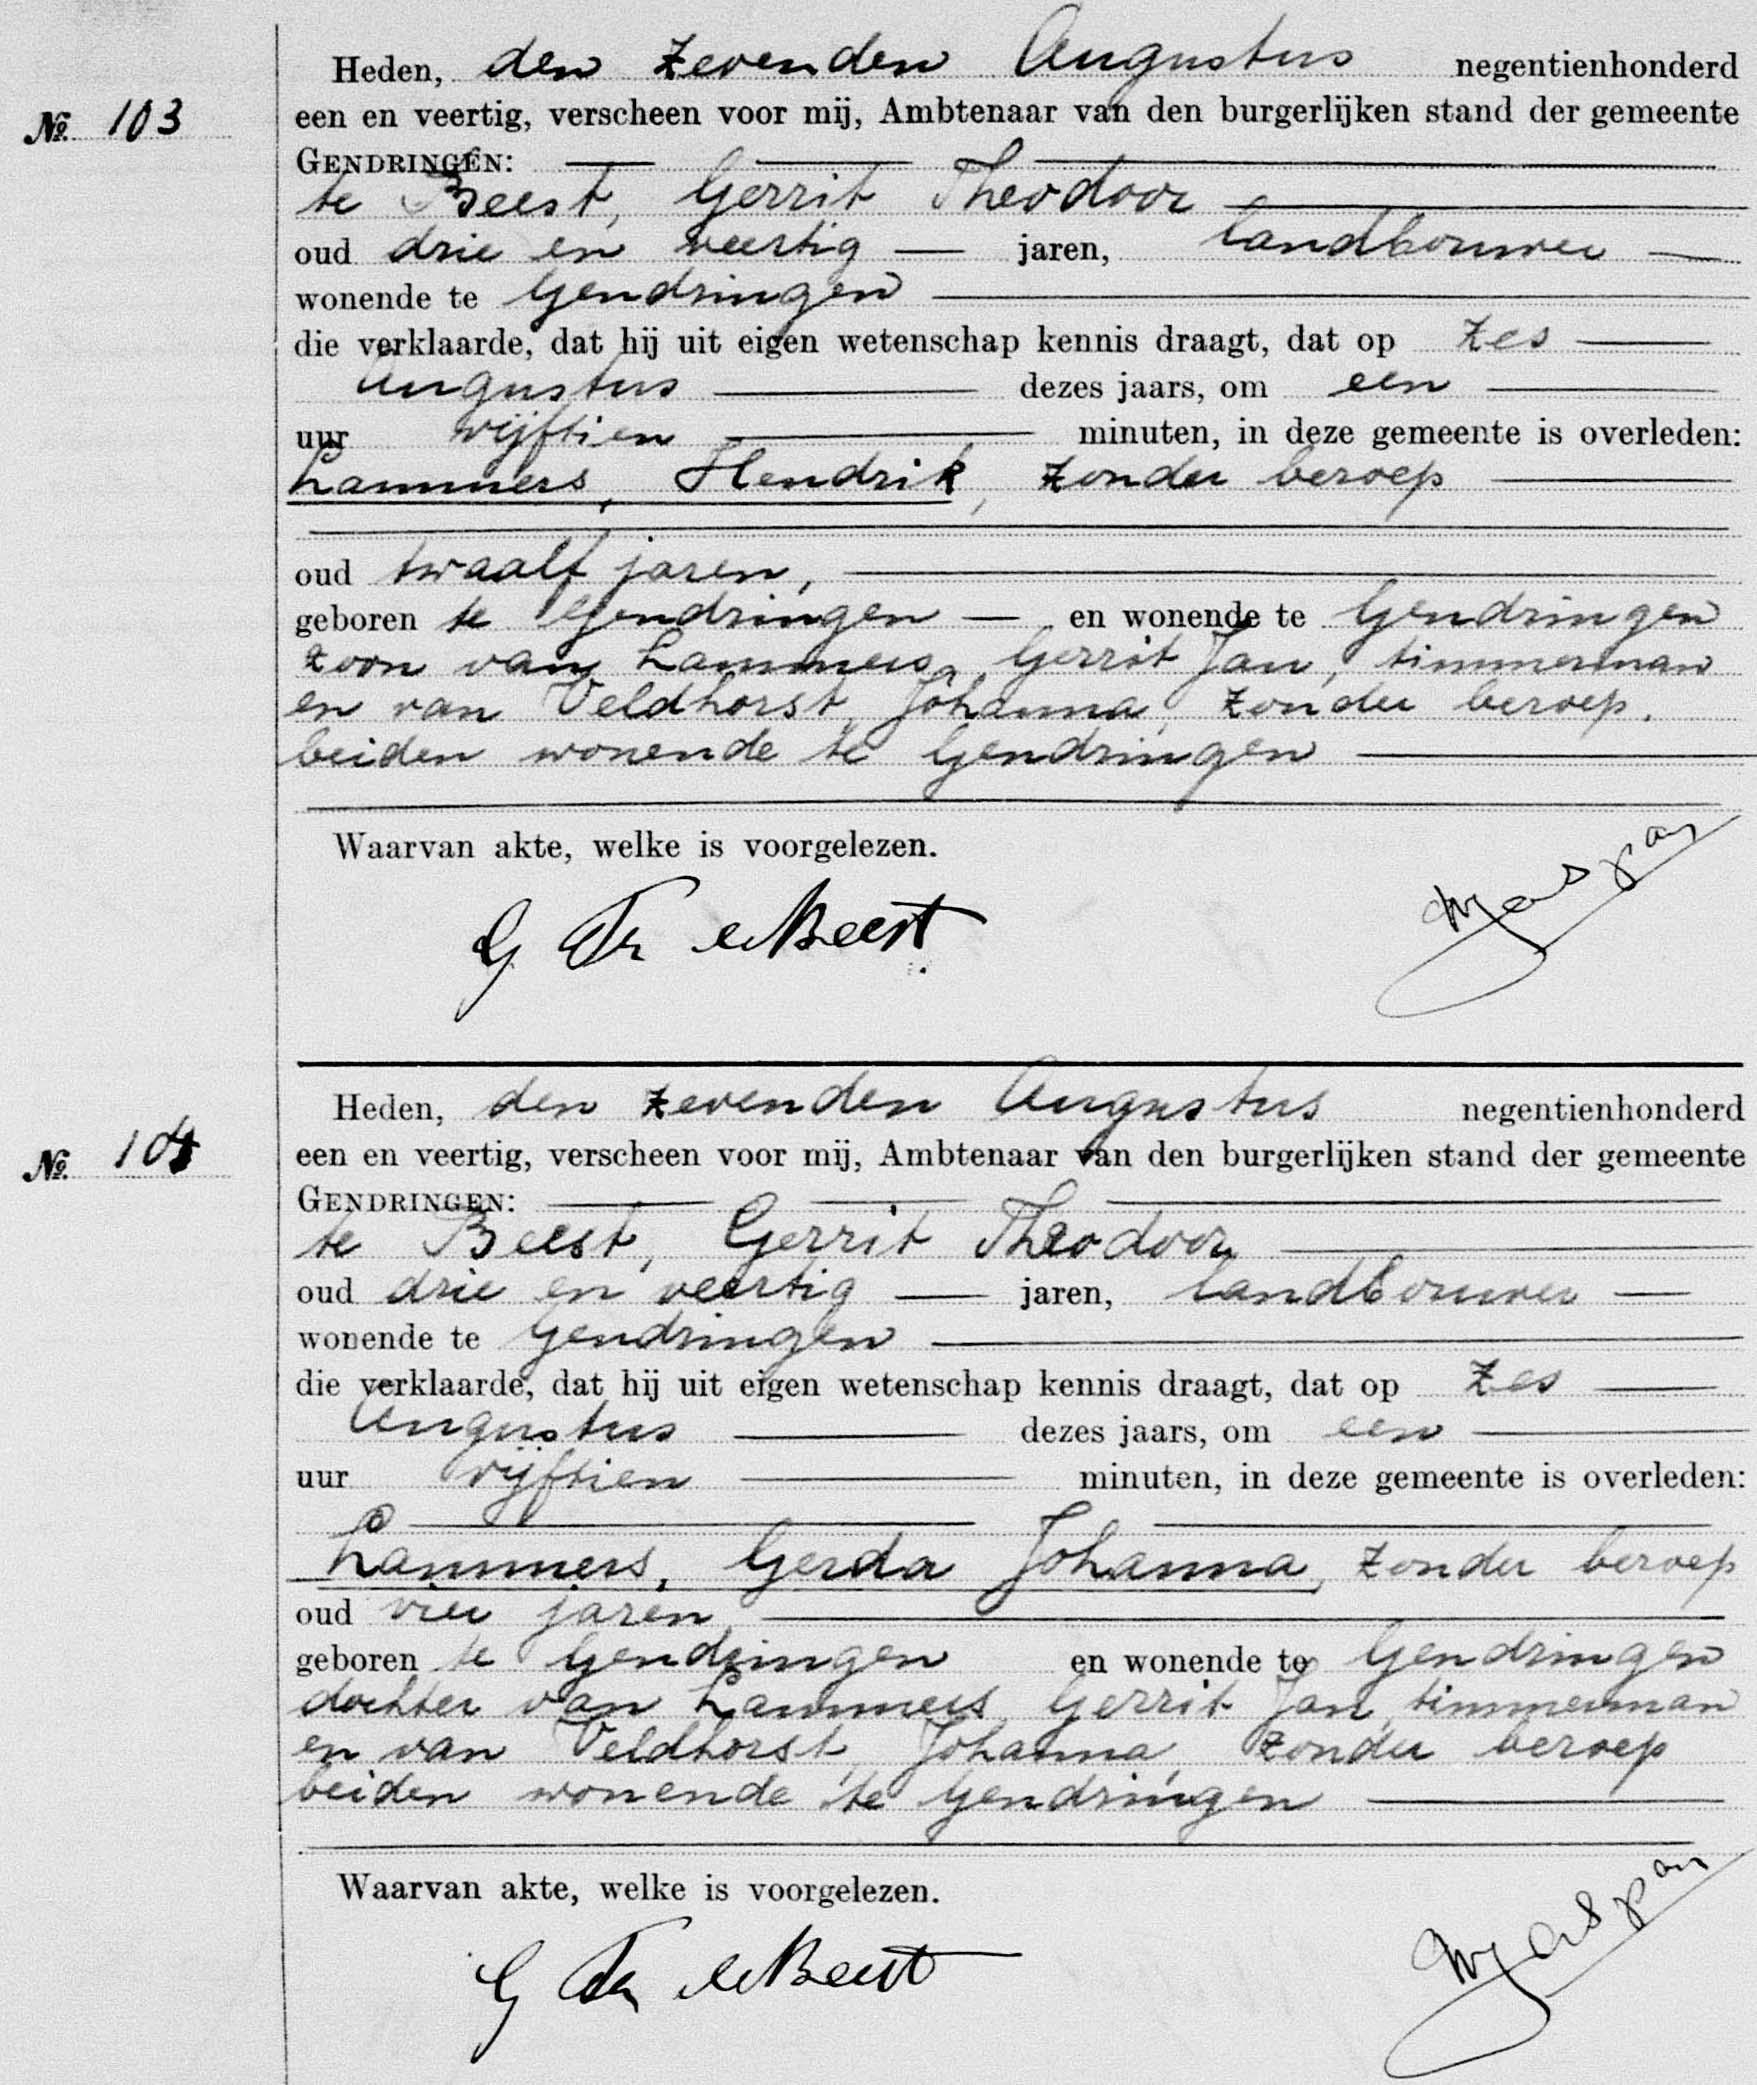 Heden, den zevenden Augustus negentienhonderd
№. 103
een en veertig, verscheen voor mij, Ambtenaar van den burgerlijken stand der gemeente
GENDRINGEN:
te Beest, Gerrit Theodoor
oud drie en veertig jaren, landbouwer
wonende te Gendringen
die verklaarde, dat hij uit eigen wetenschap kennis draagt, dat op zes
Augustus dezes jaars, om een
uur vijftien minuten, in deze gemeente is overleden:
Lammers, Hendrik, zonder beroep
oud twaalf jaren,
geboren te Gendringen en wonende te Gendringen
zoon van Lammers, Gerrit Jan, timmerman
en van Veldhorst, Johanna, zonder beroep.
beiden wonende te Gendringen
Waarvan akte, welke is voorgelezen.
G Th te Beest
Heden, den zevenden Augustus negentienhonderd
№. 104
een en veertig, verscheen voor mij, Ambtenaar van den burgerlijken stand der gemeente
GENDRINGEN:
te Beest, Gerrit Theodoor
oud drie en veertig jaren, landbouwer
wonende te Gendringen
die verklaarde, dat hij uit eigen wetenschap kennis draagt, dat op zes
Augustus dezes jaars, om een
uur vijftien minuten, in deze gemeente is overleden:
Lammers, Gerda Johanna, zonder beroep
oud vier jaren,
geboren te Gendringen en wonende te Gendringen
dochter van Lammers, Gerrit Jan, timmerman
en van Veldhorst, Johanna, zonder beroep
beiden wonende te Gendringen
Waarvan akte, welke is voorgelezen.
G Th te Beest